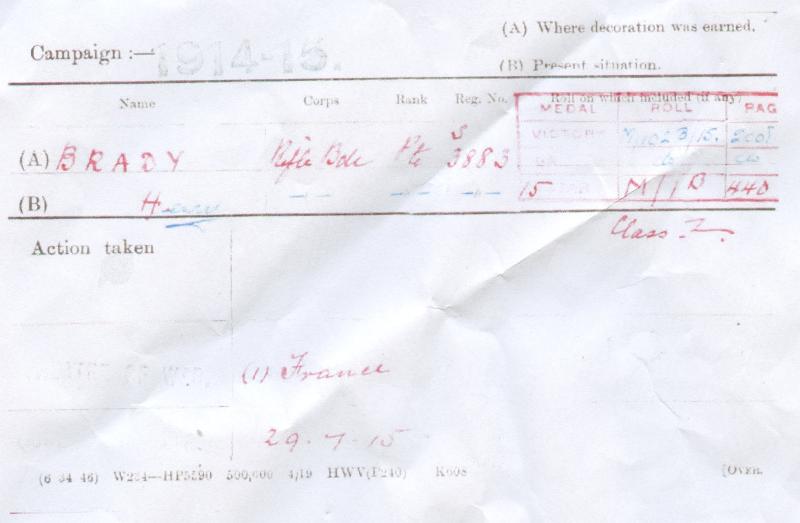 Campaign :— 1914-15.
(A) Where decoration was earned.
(B) Present situation.
Name Corps Rank Reg. No. Roll on which included (if any)
MEDAL ROLL PAG
(A) BRADY Rifle Bde Pte S/3883
VICTORY 2001
(B) Henry —"— —"— —"—
15 M/1B 440
Class Z.
Action taken
(1) France
29-7-15
(6 34 46) W234—HP5590 500,000 4/19 HWV(P240) K608 [OVER.